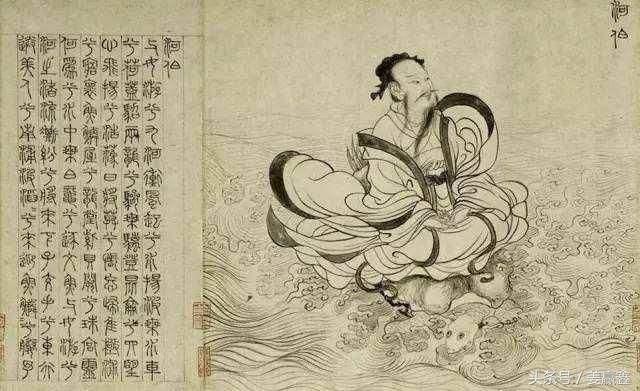 河伯
河伯
與女遊兮九河衝風起兮水揚波乘水車
兮荷蓋駕兩龍兮驂螭登崑崙兮四望
心飛揚兮浩蕩日將暮兮悵忘歸惟極浦
兮寤懷魚鱗屋兮龍堂紫貝闕兮珠宮靈
何爲兮水中乘白黿兮逐文魚與女遊兮
河之渚流澌紛兮將來下子交手兮東行
送美人兮南浦波滔滔兮來迎魚鱗鱗兮媵予
头条号/姜赢鑫